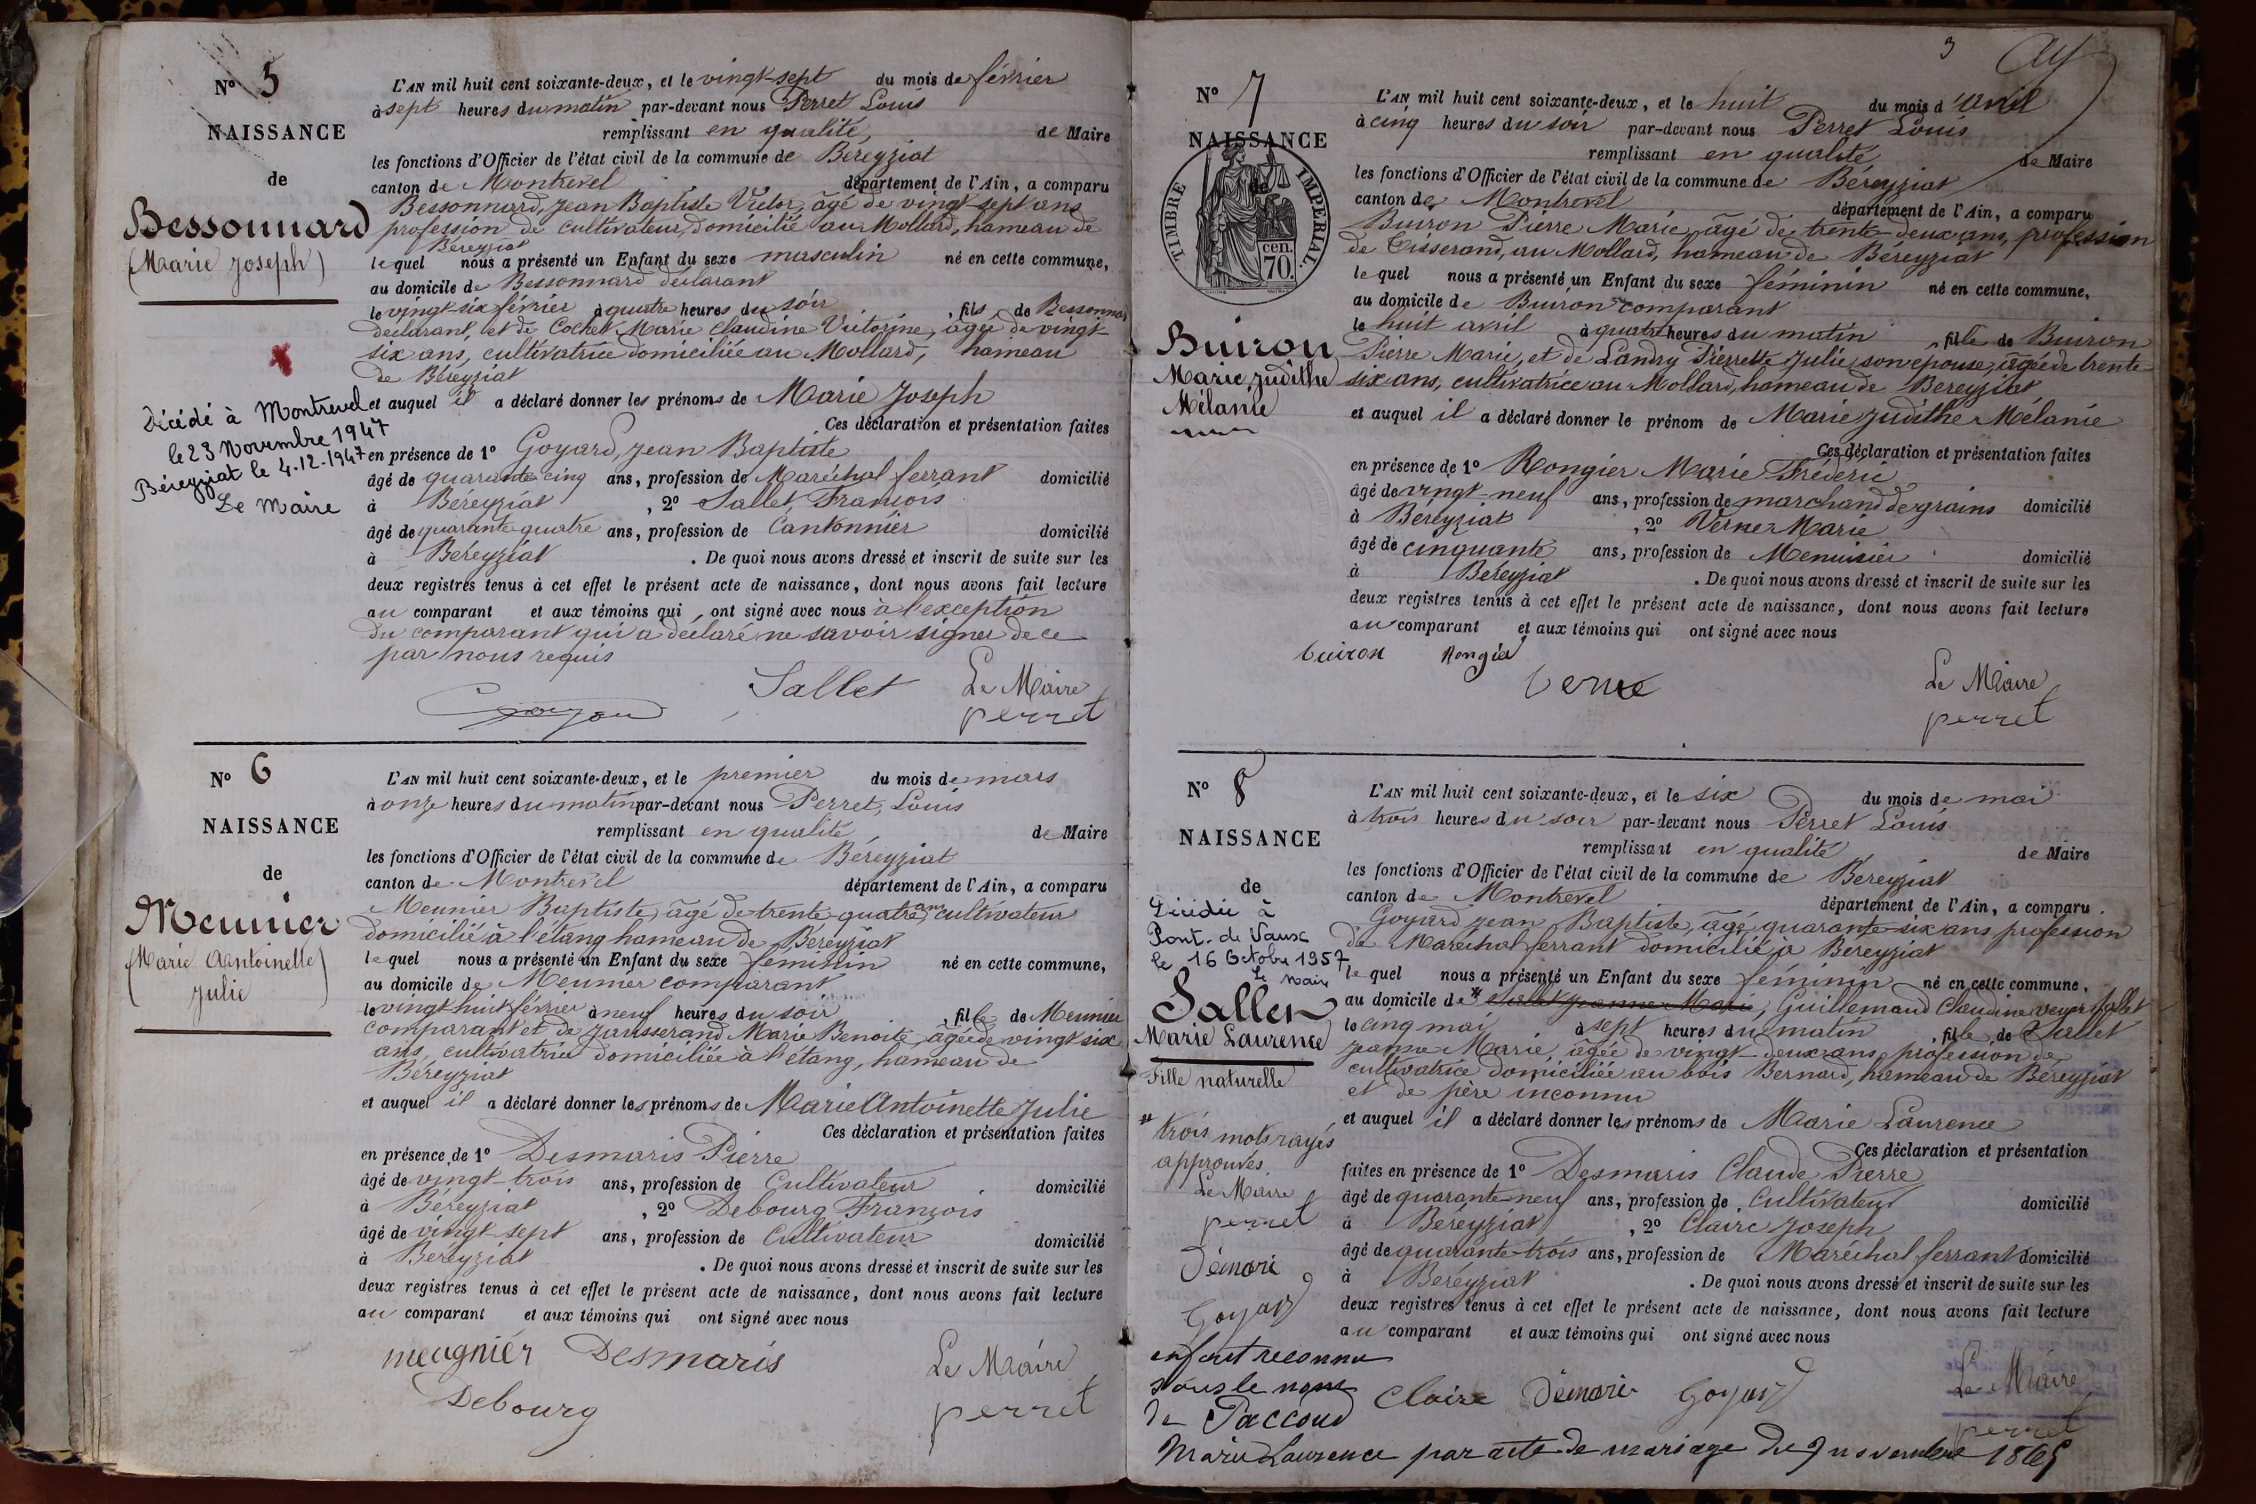 Nº 5
NAISSANCE
de
Bessonnard
(Marie Joseph)
Décédé à Montrevel
le 23 Novembre 1947
Béreyziat le 4.12.1947
Le Maire
L'AN mil huit cent soixante-deux, et le vingt-sept du mois de février
à sept heures du matin par-devant nous Perret Louis
remplissant en qualité de Maire
les fonctions d'Officier de l'état civil de la commune de Béreyziat
canton de Montrevel département de l'Ain, a comparu
Bessonnard, Jean Baptiste Victor, âgé de vingt-sept ans
profession de cultivateur, domicilié au Mollard, hameau de
Béreyziat
lequel nous a présenté un Enfant du sexe masculin né en cette commune,
au domicile de Bessonnard déclarant
le vingt-six février à quatre heures du soir, fils de Bessonnard
déclarant, et de Cochet Marie Claudine Victorine, âgée de vingt-
six ans, cultivatrice domiciliée au Mollard, hameau
de Béreyziat
et auquel il a déclaré donner les prénoms de Marie Joseph
Ces déclaration et présentation faites
en présence de 1º Goyard, Jean Baptiste
âgé de quarante-cinq ans, profession de Maréchal ferrant domicilié
à Béreyziat, 2º Sallet, François
âgé de quarante-quatre ans, profession de Cantonnier domicilié
à Béreyziat. De quoi nous avons dressé et inscrit de suite sur les
deux registres tenus à cet effet le présent acte de naissance, dont nous avons fait lecture
au comparant et aux témoins qui, ont signé avec nous à l'exception
du comparant qui a déclaré ne savoir signer de ce
par nous requis
Goyard Sallet Le Maire
perret
Nº 6
NAISSANCE
de
Meunier
(Marie Antoinette
Julie)
L'AN mil huit cent soixante-deux, et le premier du mois de mars
à onze heures du matin par-devant nous Perret, Louis
remplissant en qualité de Maire
les fonctions d'Officier de l'état civil de la commune de Béreyziat
canton de Montrevel département de l'Ain, a comparu
Meunier Baptiste, âgé de trente-quatre ans cultivateur
domicilié à l'étang hameau de Béreyziat
lequel nous a présenté un Enfant du sexe féminin né en cette commune,
au domicile de Meunier comparant
le vingt huit février à neuf heures du soir, fille de Meunier
comparant et de Jausserand Marie Benoite, âgée de vingt six
ans, cultivatrice domiciliée à l'étang, hameau de
Béreyziat
et auquel il a déclaré donner les prénoms de Marie Antoinette Julie
Ces déclaration et présentation faites
en présence de 1º Desmaris Pierre
âgé de vingt-trois ans, profession de Cultivateur domicilié
à Béreyziat, 2º Debourg François
âgé de vingt sept ans, profession de Cultivateur domicilié
à Béreyziat. De quoi nous avons dressé et inscrit de suite sur les
deux registres tenus à cet effet le présent acte de naissance, dont nous avons fait lecture
au comparant et aux témoins qui ont signé avec nous
meugniér Desmaris Le Maire
Debourg perret
3
Nº 7
NAISSANCE
de
TIMBRE IMPERIAL
70 cen.
Buiron
Marie Judithe
Mélanie
L'AN mil huit cent soixante-deux, et le huit du mois d'avril
à cinq heures du soir par-devant nous Perret Louis
remplissant en qualité de Maire
les fonctions d'Officier de l'état civil de la commune de Béreyziat
canton de Montrevel département de l'Ain, a comparu
Buiron Pierre Marie, âgé de trente-deux ans, profession
de Tisserand, au Mollard, hameau de Béreyziat
lequel nous a présenté un Enfant du sexe féminin né en cette commune,
au domicile de Buiron comparant
le huit avril à quatre heures du matin, fille de Buiron
Pierre Marie, et de Landry Pierrette Julie, son épouse, âgée de trente-
six ans, cultivatrice au Mollard, hameau de Béreyziat
et auquel il a déclaré donner le prénom de Marie Judithe Mélanie
Ces déclaration et présentation faites
en présence de 1º Rongier Marie Fréderic
âgé de vingt-neuf ans, profession de marchand de grains domicilié
à Béreyziat, 2º Verne Marie
âgé de cinquante ans, profession de Menuisier domicilié
à Béreyziat. De quoi nous avons dressé et inscrit de suite sur les
deux registres tenus à cet effet le présent acte de naissance, dont nous avons fait lecture
au comparant et aux témoins qui ont signé avec nous
buiron Rongier
Verne Le Maire
perret
Nº 8
NAISSANCE
de
Décédée à
Pont-de-Vaux
le 16 Octobre 1957
Le Maire
Sallet
Marie Laurence
Fille naturelle
* trois mots rayés
approuvés.
Le Maire
perret
Démari
Goyard
L'AN mil huit cent soixante-deux, et le six du mois de mai
à trois heures du soir par-devant nous Perret Louis
remplissant en qualité de Maire
les fonctions d'Officier de l'état civil de la commune de Béreyziat
canton de Montrevel département de l'Ain, a comparu
Goyard Jean Baptiste, âgé quarante-six ans profession
de Maréchal ferrant domicilié à Béreyziat
lequel nous a présenté un Enfant du sexe féminin né en cette commune,
au domicile de * Sallet Jeanne Marie, Guillemaud Claudine veuve Sallet
le cinq mai à sept heures du matin, fille de Sallet
Jeanne Marie, âgée de vingt-deux ans, profession de
cultivatrice domiciliée au bois Bernard, hameau de Béreyziat
et de père inconnu
et auquel il a déclaré donner les prénoms de Marie Laurence
Ces déclaration et présentation
faites en présence de 1º Desmaris Claude Pierre
âgé de quarante-neuf ans, profession de Cultivateur domicilié
à Béreyziat, 2º Claire Joseph
âgé de quarante-trois ans, profession de Maréchal ferrant domicilié
à Béreyziat. De quoi nous avons dressé et inscrit de suite sur les
deux registres tenus à cet effet le présent acte de naissance, dont nous avons fait lecture
au comparant et aux témoins qui ont signé avec nous
Claire Démari Goyard Le Maire
perret
enfant reconnu
sous le nom
de Paccoud
Marie Laurence par acte de mariage du 9 novembre 1865